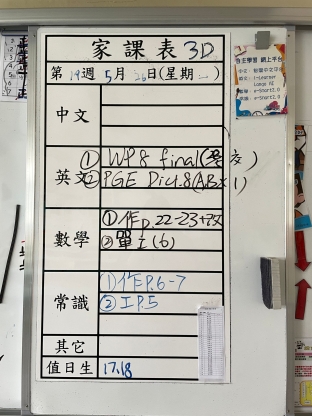 家課表 3D
第 19 週 5月 26日(星期二)
中文
① WP8 final(要交)
英文
② PGE Dict.8(AB×1)
數學
① 作p.22-23+改
② 單工(6)
常識
① 作P.6-7
② 工P.5
其它
值日生 17,18
自主學習 網上平台